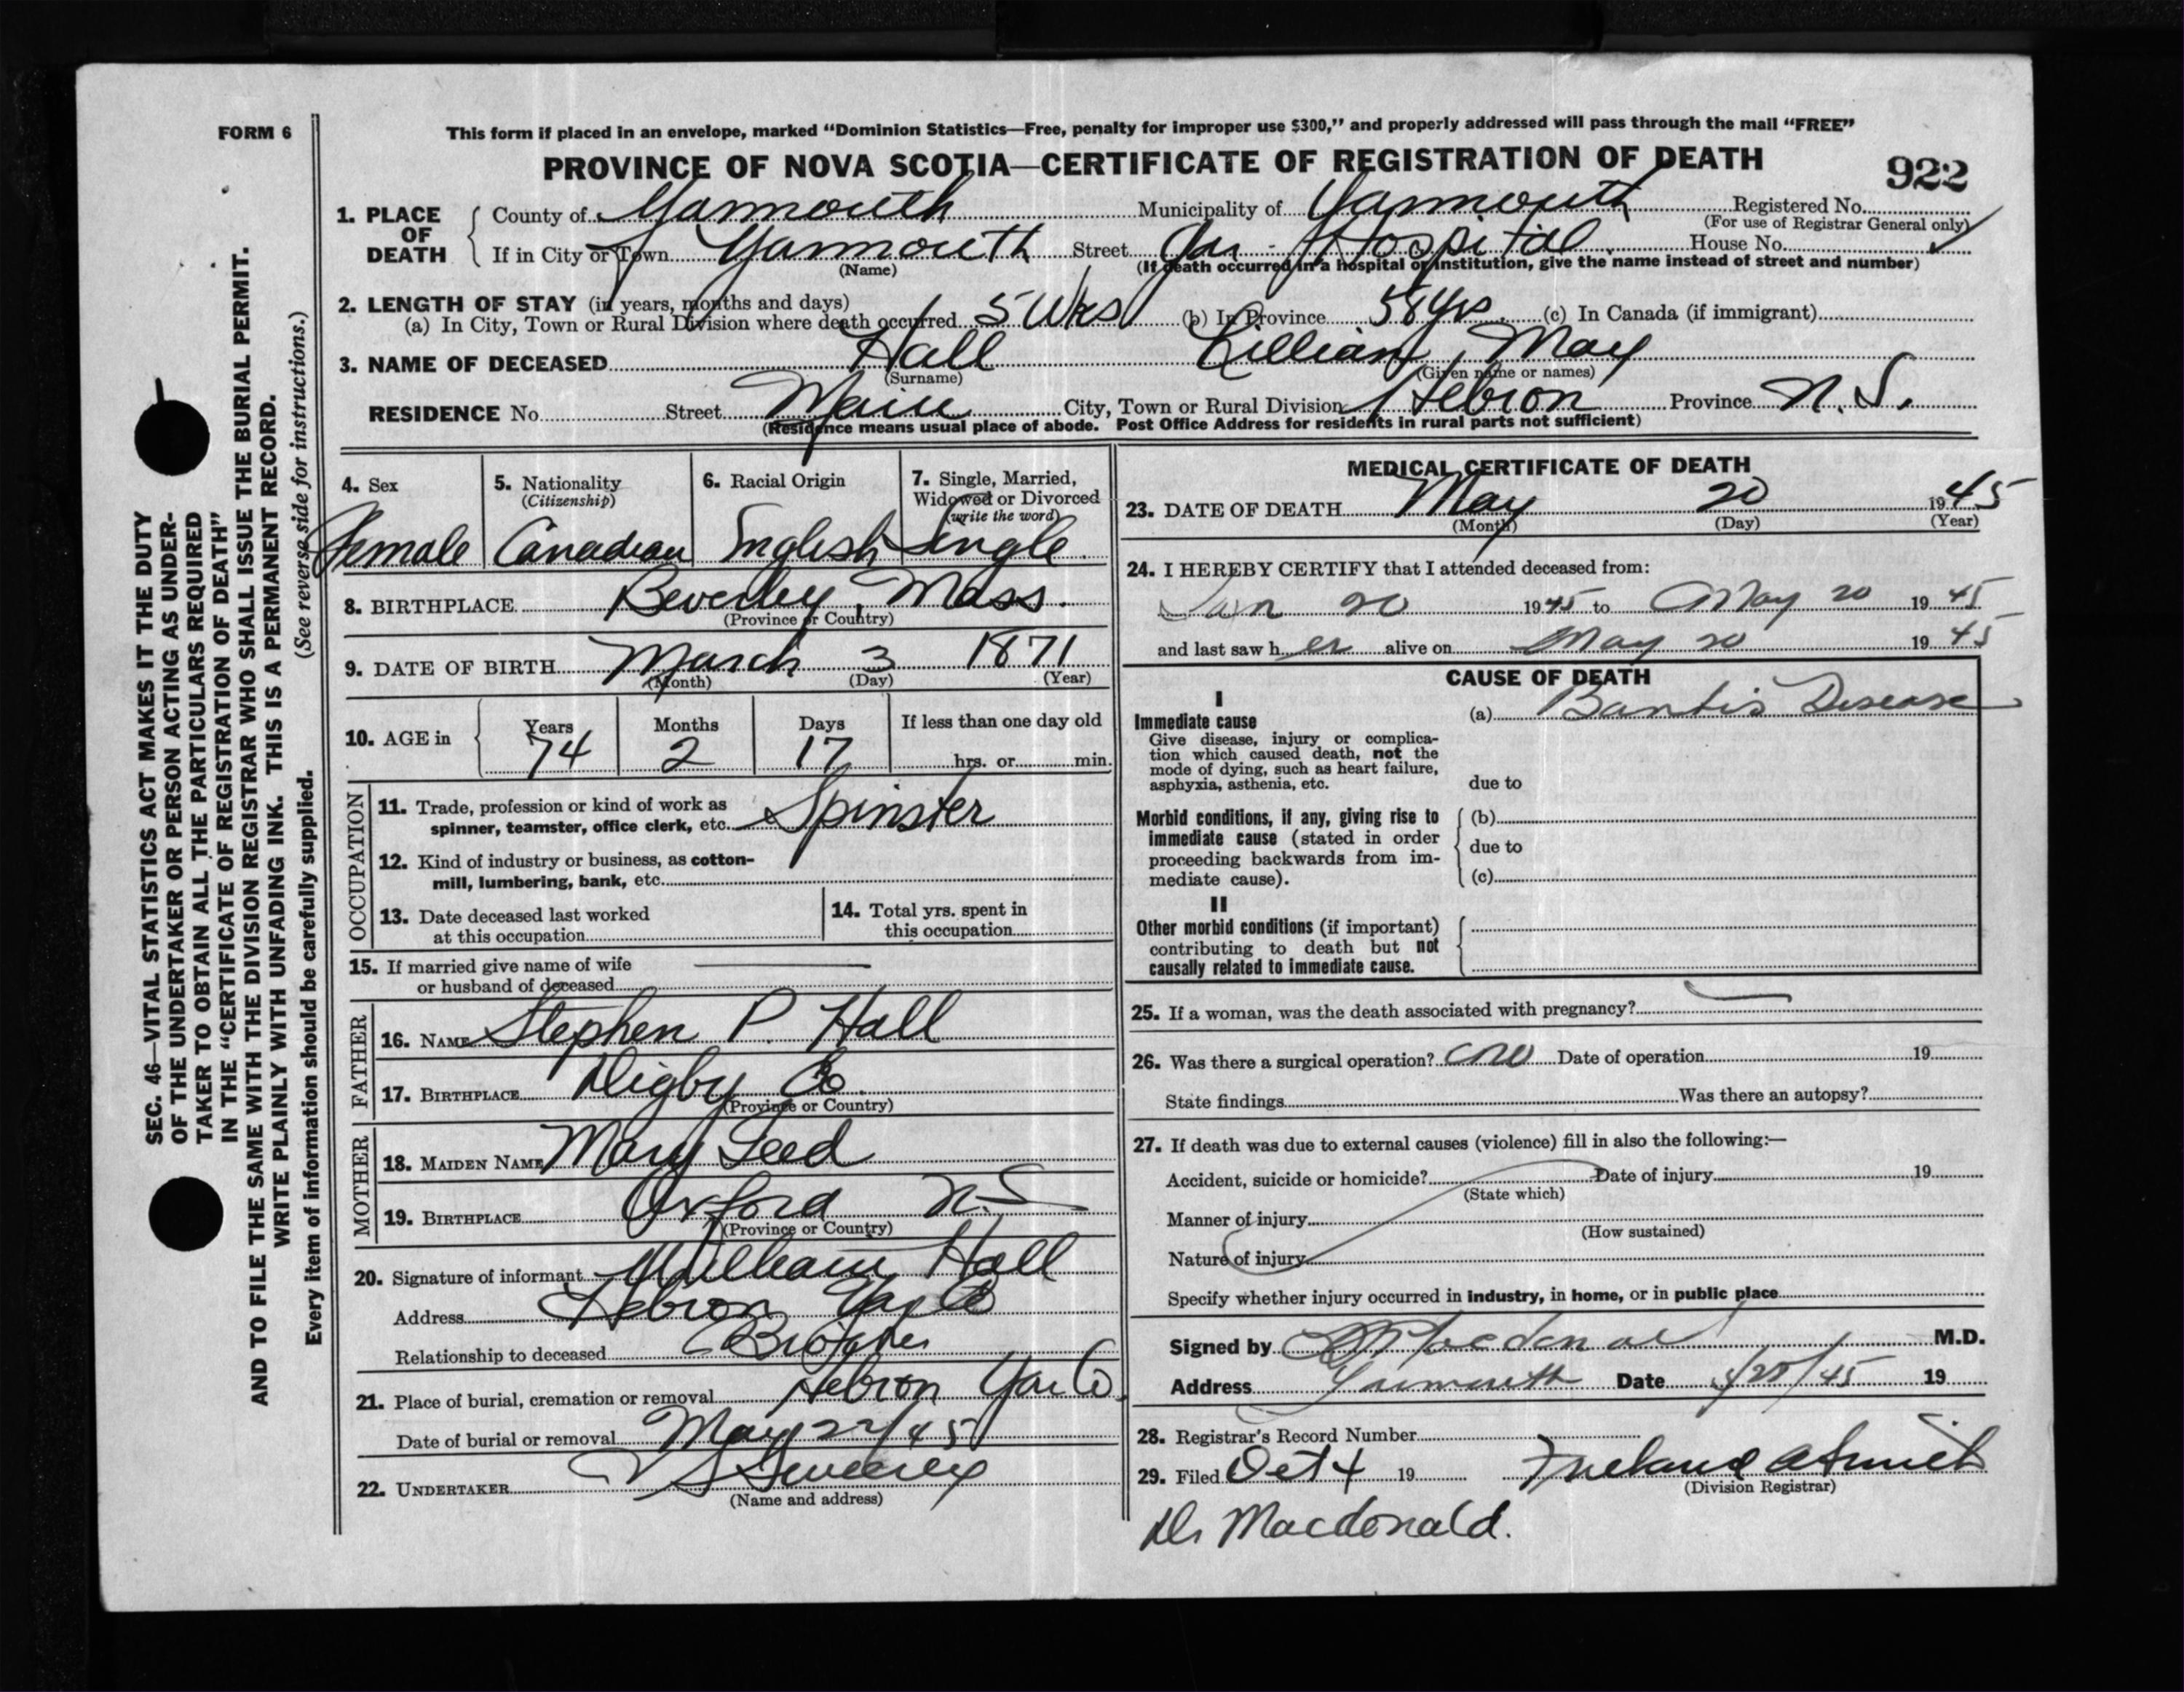 FORM 6
This form if placed in an envelope, marked "Dominion Statistics—Free, penalty for improper use $300," and properly addressed will pass through the mail "FREE"
PROVINCE OF NOVA SCOTIA—CERTIFICATE OF REGISTRATION OF DEATH
922
1. PLACE OF DEATH
County of Yarmouth Municipality of Yarmouth Registered No.
(For use of Registrar General only)
If in City or Town Yarmouth Street Yar - Hospital House No.
(Name) (If death occurred in a hospital or institution, give the name instead of street and number)
2. LENGTH OF STAY (in years, months and days)
(a) In City, Town or Rural Division where death occurred 5 Wks (b) In Province 58 yrs. (c) In Canada (if immigrant)
3. NAME OF DECEASED Hall Lillian, May
(Surname) (Given name or names)
RESIDENCE No. Street Main City, Town or Rural Division Hebron Province N.S.
(Residence means usual place of abode. Post Office Address for residents in rural parts not sufficient)
SEC. 46—VITAL STATISTICS ACT MAKES IT THE DUTY
OF THE UNDERTAKER OR PERSON ACTING AS UNDER-
TAKER TO OBTAIN ALL THE PARTICULARS REQUIRED
IN THE "CERTIFICATE OF REGISTRATION OF DEATH"
AND TO FILE THE SAME WITH THE DIVISION REGISTRAR WHO SHALL ISSUE THE BURIAL PERMIT.
WRITE PLAINLY WITH UNFADING INK. THIS IS A PERMANENT RECORD.
Every item of information should be carefully supplied. (See reverse side for instructions.)
4. Sex
Female
5. Nationality
(Citizenship)
Canadian
6. Racial Origin
English
7. Single, Married,
Widowed or Divorced
(write the word)
Single
8. BIRTHPLACE Beverley, Mass.
(Province or Country)
9. DATE OF BIRTH March 3 1871
(Month) (Day) (Year)
10. AGE in
Years Months Days If less than one day old
74 2 17 hrs. or min.
OCCUPATION
11. Trade, profession or kind of work as
spinner, teamster, office clerk, etc. Spinster
12. Kind of industry or business, as cotton-
mill, lumbering, bank, etc.
13. Date deceased last worked
at this occupation
14. Total yrs. spent in
this occupation
15. If married give name of wife
or husband of deceased
FATHER
16. NAME Stephen P. Hall
17. BIRTHPLACE Digby Co.
(Province or Country)
MOTHER
18. MAIDEN NAME Mary
19. BIRTHPLACE Oxford N.S
(Province or Country)
20. Signature of informant William Hall
Address Hebron Yar Co
Relationship to deceased Brother
21. Place of burial, cremation or removal Hebron Yar Co.
Date of burial or removal May 22/45
22. UNDERTAKER V S Sweeney
(Name and address)
MEDICAL CERTIFICATE OF DEATH
23. DATE OF DEATH May 20 1945
(Month) (Day) (Year)
24. I HEREBY CERTIFY that I attended deceased from:
Jan 20 1945 to May 20 1945
and last saw her alive on May 20 1945
CAUSE OF DEATH
I
Immediate cause
Give disease, injury or complica-
tion which caused death, not the
mode of dying, such as heart failure,
asphyxia, asthenia, etc.
(a) Bantis Disease
due to
Morbid conditions, if any, giving rise to
immediate cause (stated in order
proceeding backwards from im-
mediate cause).
(b)
due to
(c)
II
Other morbid conditions (if important)
contributing to death but not
causally related to immediate cause.
25. If a woman, was the death associated with pregnancy?
26. Was there a surgical operation? no Date of operation 19
State findings Was there an autopsy?
27. If death was due to external causes (violence) fill in also the following:—
Accident, suicide or homicide? Date of injury 19
(State which)
Manner of injury
(How sustained)
Nature of injury
Specify whether injury occurred in industry, in home, or in public place
Signed by Macdonald M.D.
Address Yarmouth Date /20/45 19
28. Registrar's Record Number
29. Filed Oct 4 19
(Division Registrar)
Dr Macdonald.